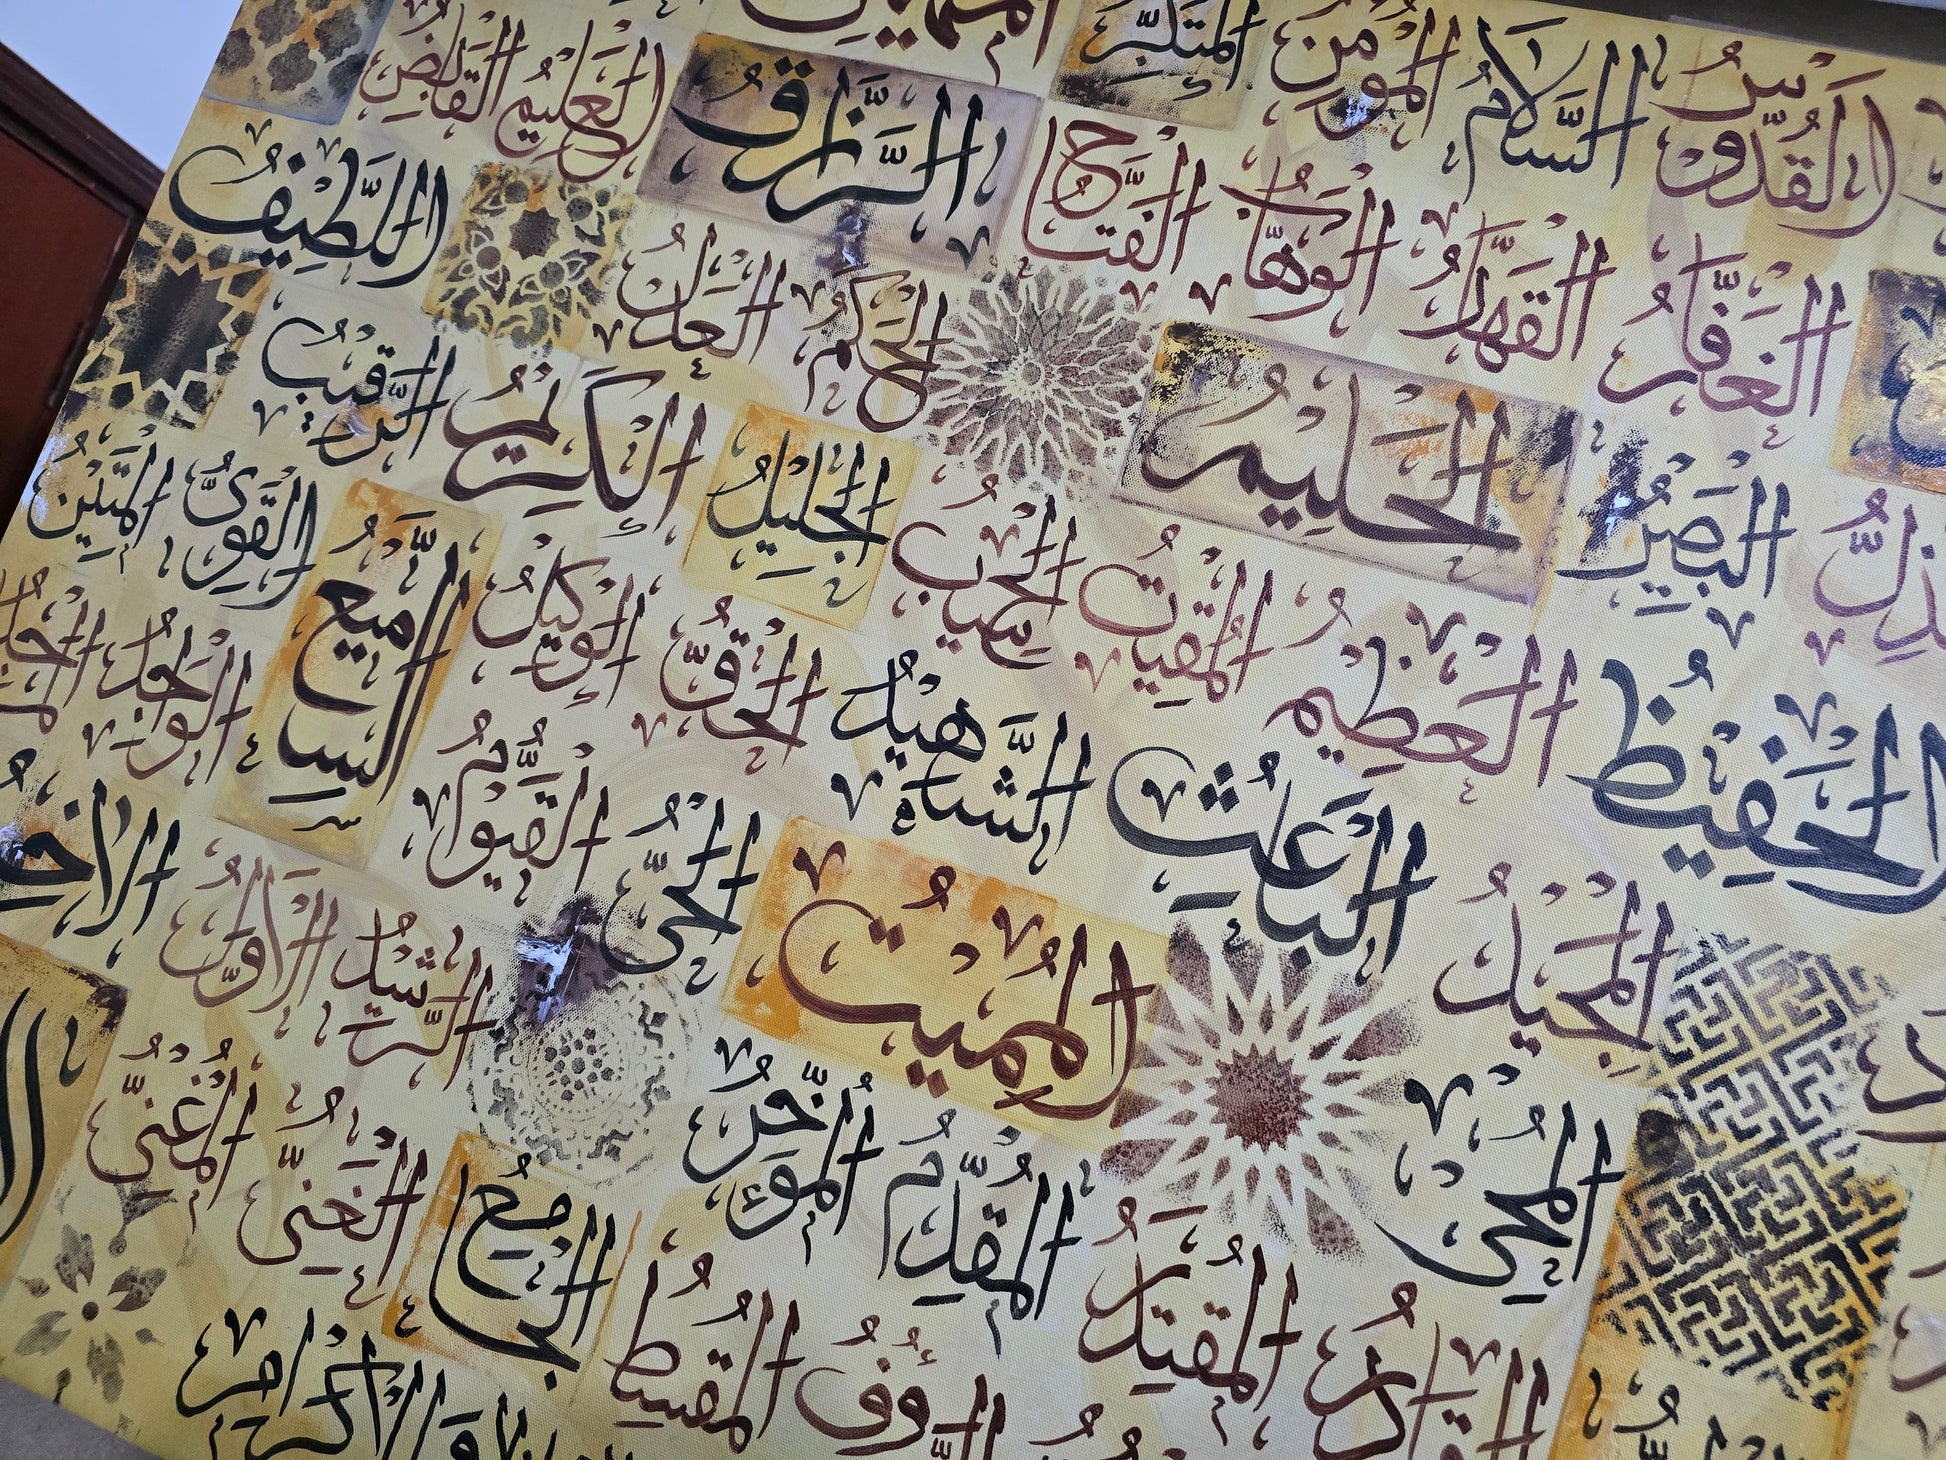 المتكبر المؤمن السلام القدوس
القابض العليم الرزاق الفتاح الوهاب القهار الغفار
اللطيف العدل الحكم الحليم البصير
الرقيب الكريم الجليل الحسيب المقيت العظيم الحفيظ
المتين القوي السميع الوكيل الحق الشهيد الباعث المجيد
الواجد القيوم الحي المميت المحيي
الأول الرشيد المؤخر المقدم المقتدر القادر
المغني الغني الجامع المقسط
والإكرام